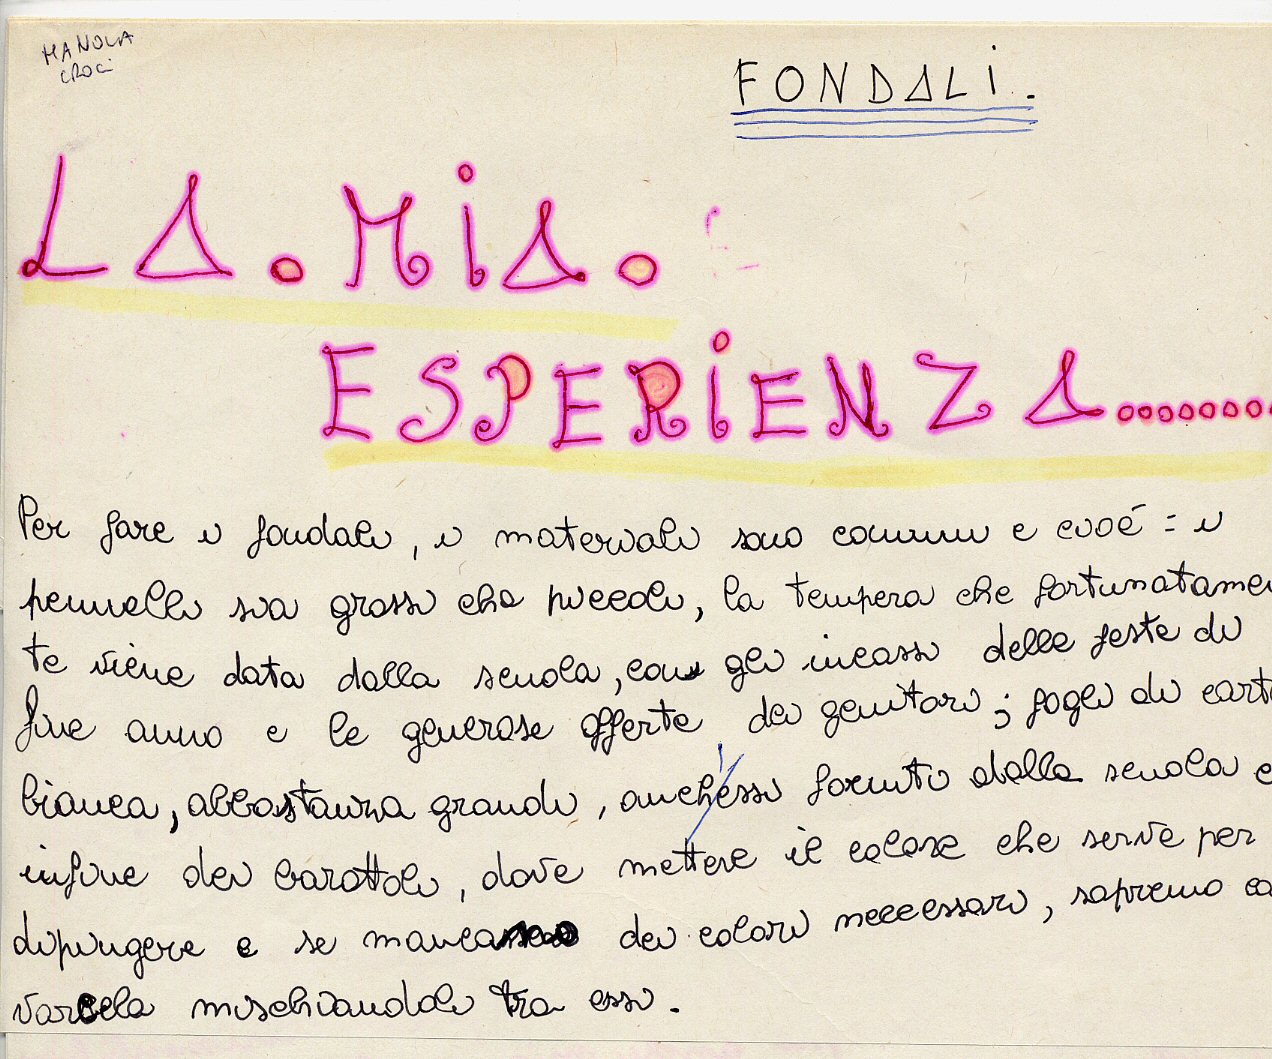 MANOLA
CROCI
FONDALI.
LA. MIA.
ESPERIENZA........
Per fare i fondali, i materiali sono comuni e cioé: i
pennelli sia grossi che piccoli, la tempera che fortunatamen
te viene data dalla scuola, con gli incassi delle feste di
fine anno e le generose offerte dei genitori; fogli di carta
bianca, abbastanza grandi, anch'essi forniti dalla scuola e
infine dei barattoli, dove mettere il colore che serve per
dipingere e se mancano dei colori neccessari, sapremo ca
varcela mischiandoli tra essi.